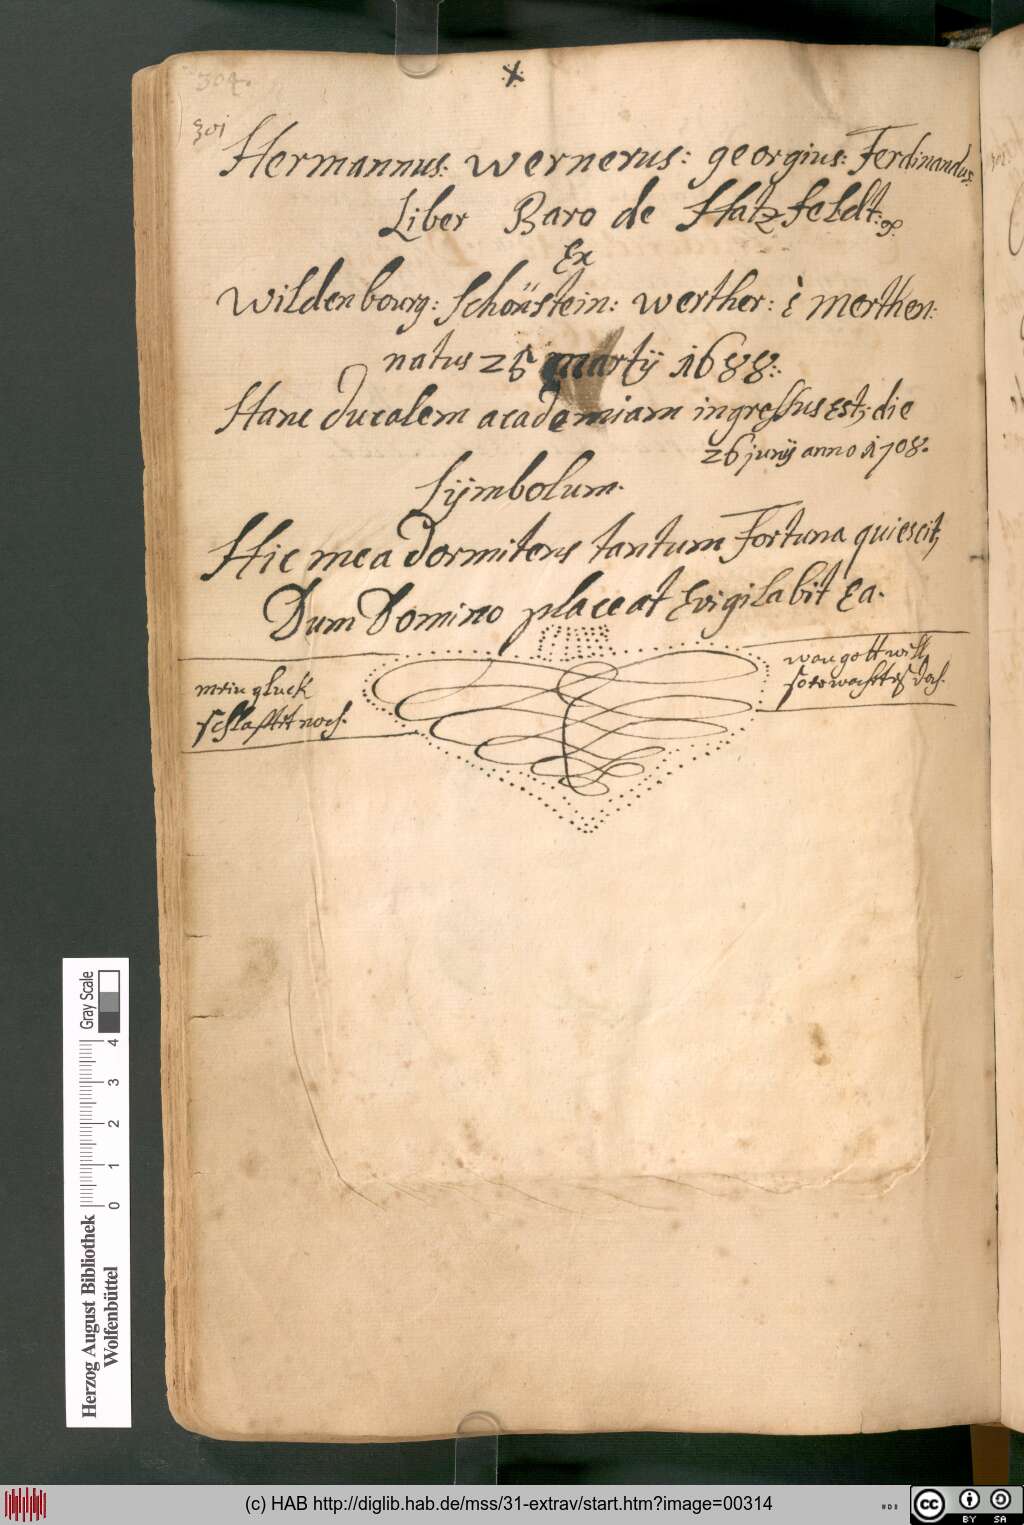 304.
301
Hermannus: wernerus: georgius: Ferdinandus:
Liber Baro de Hatzfeldt:
Ex
wildenbourg: Schönstein: werther: è merthen:
natus 25 martij 1688:
Hanc ducalem academiam ingressus est; die
26 junij anno 1708.
Sÿmbolum.
Hic mea dormitens tantum Fortuna quiescit,
Dum Domino placeat Evigilabit Ea.
wan gott will,
so erwachtes doch.
mein gluck
schlaffet noch.
Gray Scale
0 1 2 3 4
Herzog August Bibliothek
Wolfenbüttel
(c) HAB http://diglib.hab.de/mss/31-extrav/start.htm?image=00314
cc BY SA